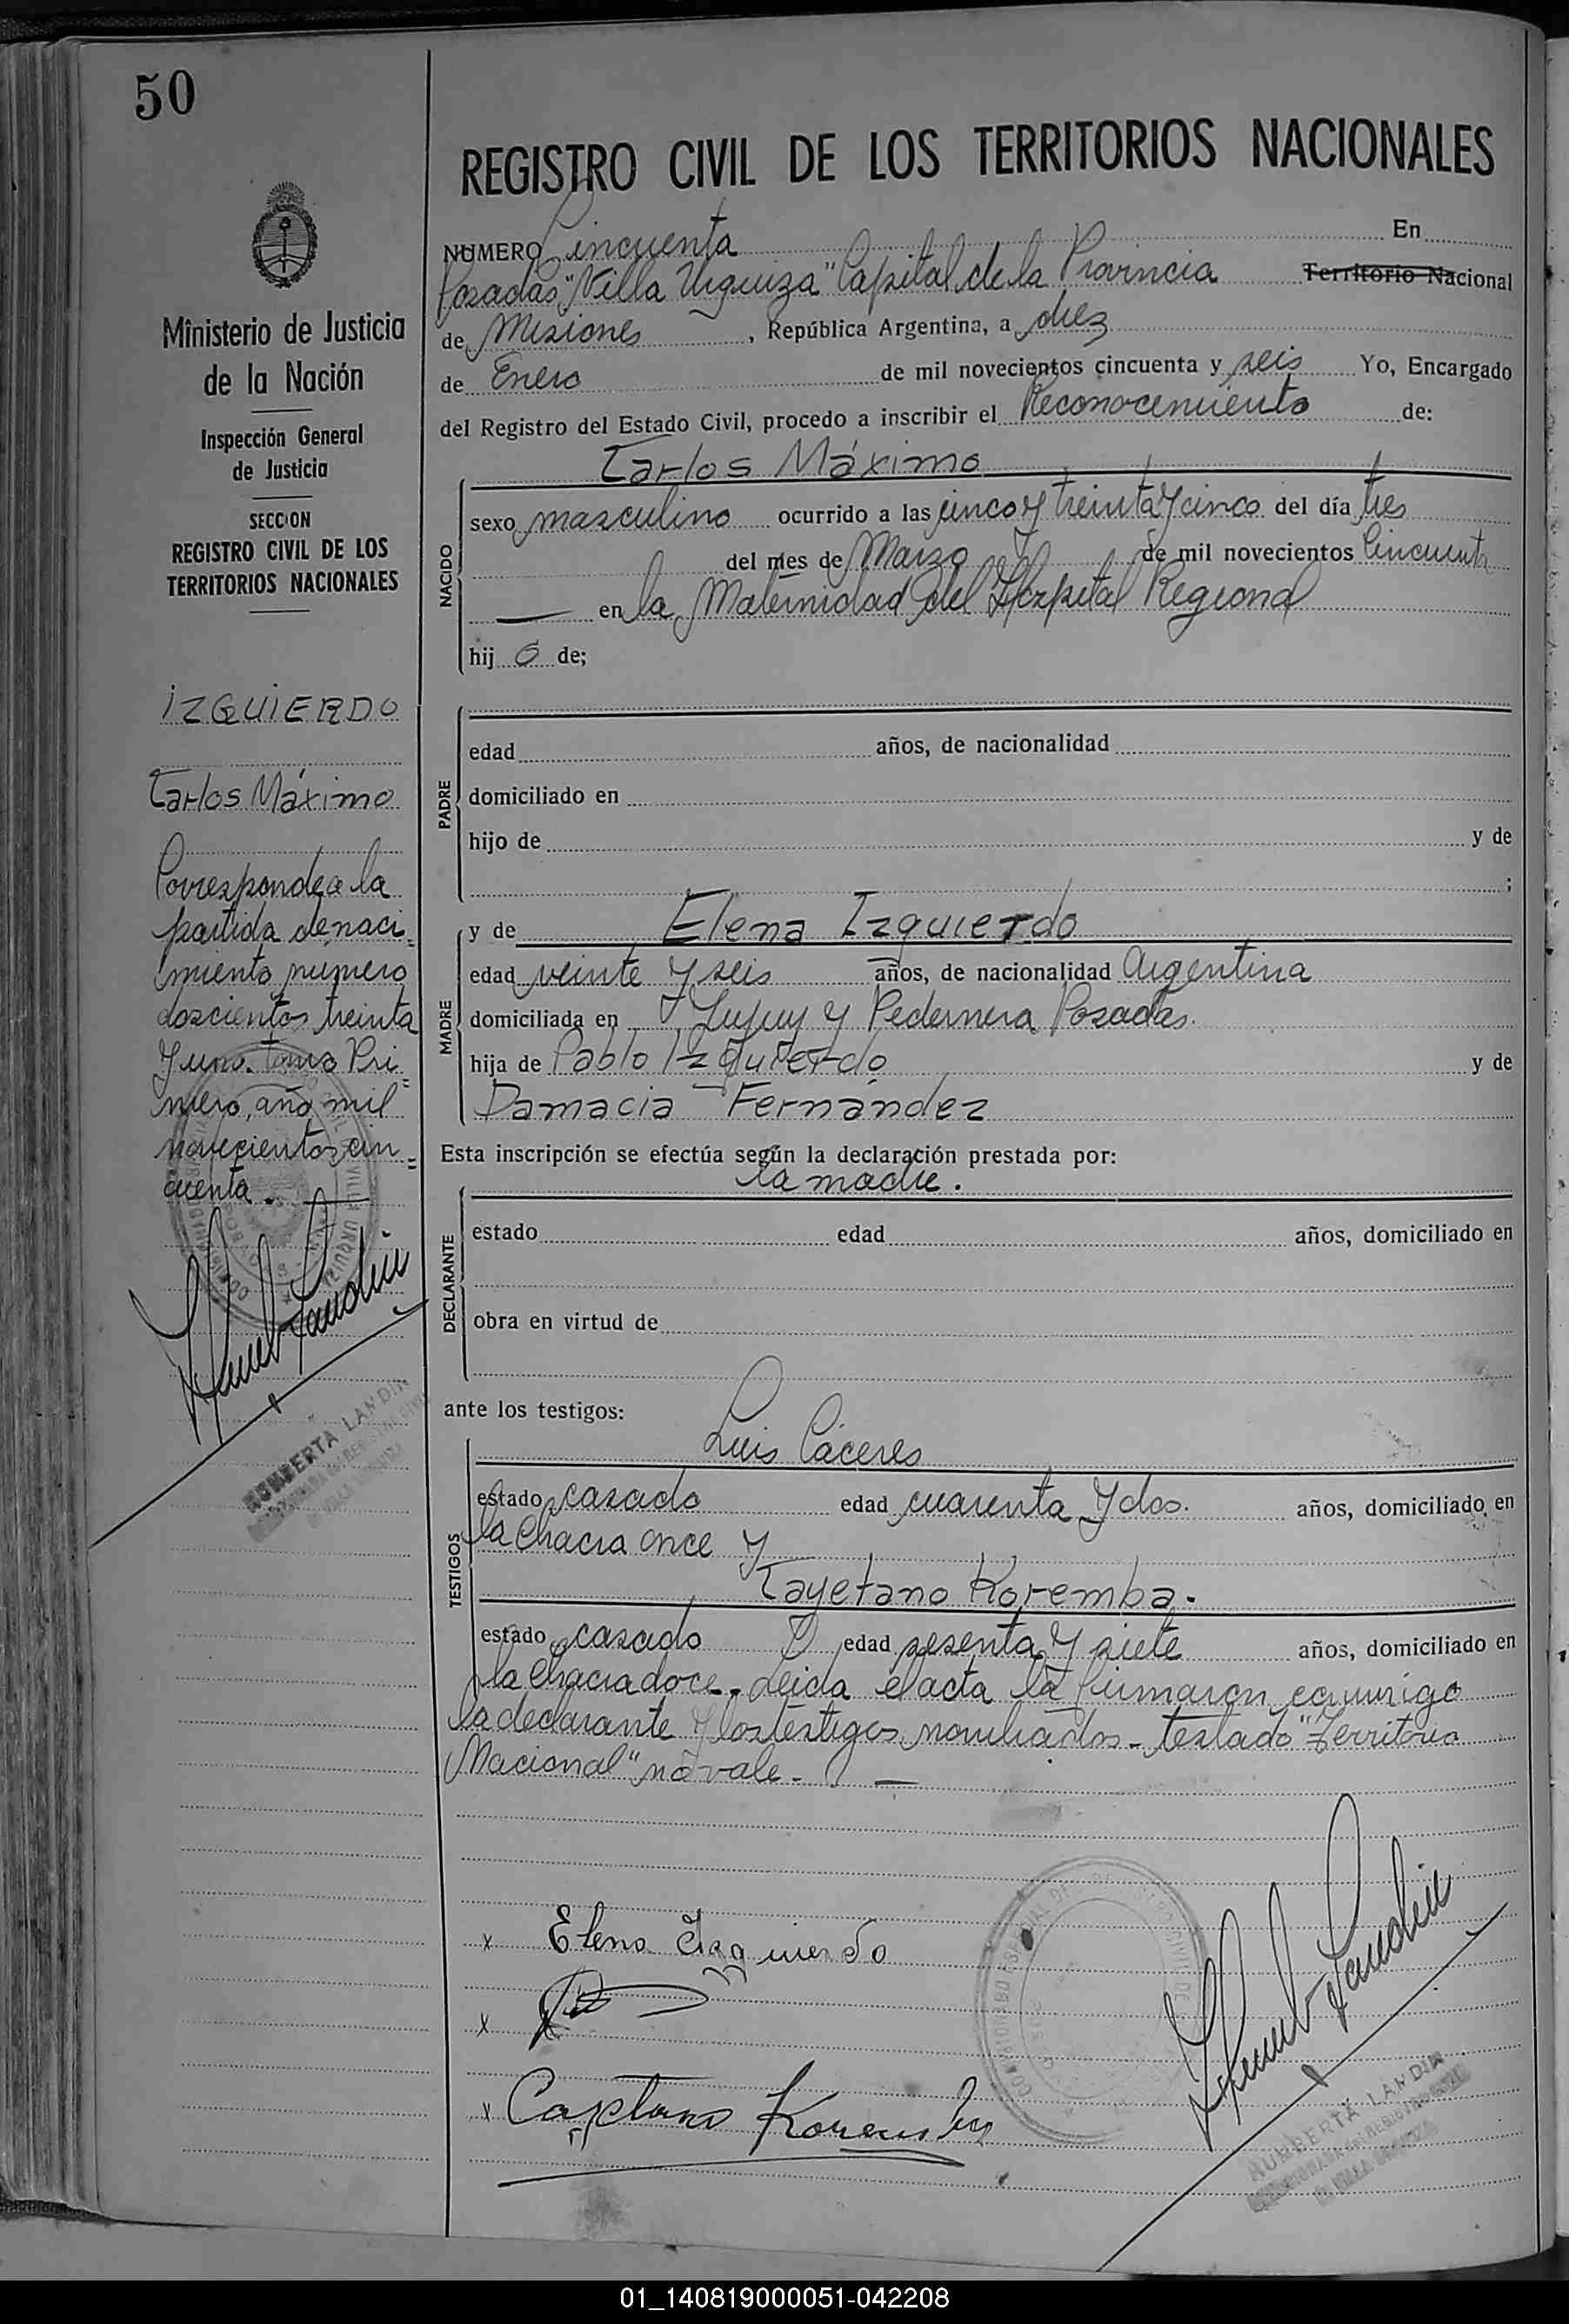 50
REGISTRO CIVIL DE LOS TERRITORIOS NACIONALES
NUMERO Cincuenta En
Posadas, "Villa Urquiza" Capital de la Provincia Territorio Nacional
de Misiones, República Argentina, a diez
de Enero de mil novecientos cincuenta y seis Yo, Encargado
del Registro del Estado Civil, procedo a inscribir el Reconocimiento de:
Carlos Máximo
NACIDO
sexo masculino ocurrido a las cinco y treinta y cinco del día tres
del mes de Marzo de mil novecientos Cincuenta
— en la Maternidad del Hospital Regional
hij o de;
PADRE
edad años, de nacionalidad
domiciliado en
hijo de y de
;
MADRE
y de Elena Izquierdo
edad veinte y seis años, de nacionalidad Argentina
domiciliada en Jujuy y Pedernera Posadas.
hija de Pablo Izquierdo y de
Damacia Fernández
Esta inscripción se efectúa según la declaración prestada por:
la madre.
DECLARANTE
estado edad años, domiciliado en
obra en virtud de
ante los testigos:
TESTIGOS
Luis Cáceres
estado casado edad cuarenta y dos. años, domiciliado en
la Chacra once y
Cayetano Koremba.
estado casado edad sesenta y siete años, domiciliado en
la Chacra doce. Leida el acta la firmaron conmigo
la declarante y los testigos nombrados - testado "Territorio
Nacional" no vale. —
x Elena Izquierdo
x
x Cayetano Koremba
HUMBERTA LANDIN
Ministerio de Justicia
de la Nación
Inspección General
de Justicia
SECCION
REGISTRO CIVIL DE LOS
TERRITORIOS NACIONALES
IZQUIERDO
Carlos Máximo
Corresponde a la
partida de naci=
miento numero
doscientos treinta
y uno. tomo Pri=
mero, año mil
novecientos cin=
cuenta.
HUMBERTA LANDIN
01_140819000051-042208